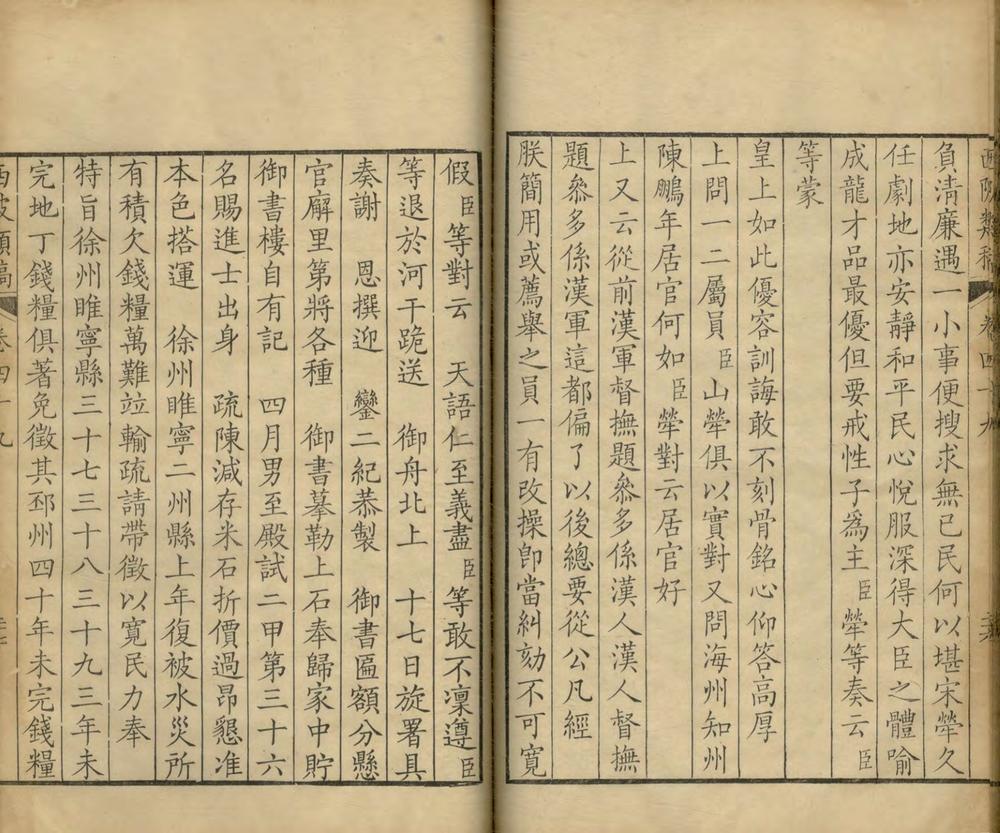 西陂類稿 卷四十九
負淸廉遇一小事便搜求無已民何以堪宋犖久
任劇地亦安靜和平民心悅服深得大臣之體喻
成龍才品最優但要戒性子爲主臣犖等奏云臣
等蒙
皇上如此優容訓誨敢不刻骨銘心仰答高厚
上問一二屬員臣山犖俱以實對又問海州知州
陳鵬年居官何如臣犖對云居官好
上又云從前漢軍督撫題叅多係漢人漢人督撫
題叅多係漢軍這都偏了以後總要從公凡經
朕簡用或薦舉之員一有改操卽當糾劾不可寬
假臣等對云 天語仁至義盡臣等敢不凜遵臣
等退於河干跪送 御舟北上 十七日旋署具
奏謝 恩撰迎 鑾二紀恭製 御書匾額分懸
官廨里第將各種 御書摹勒上石奉歸家中貯
御書樓自有記 四月男至殿試二甲第三十六
名賜進士出身 疏陳減存米石折價過昂懇准
本色搭運 徐州睢寧二州縣上年復被水災所
有積欠錢糧萬難竝輸疏請帶徵以寬民力奉
特旨徐州睢寧縣三十七三十八三十九三年未
完地丁錢糧俱著免徵其邳州四十年未完錢糧
西陂類稿 卷四十九